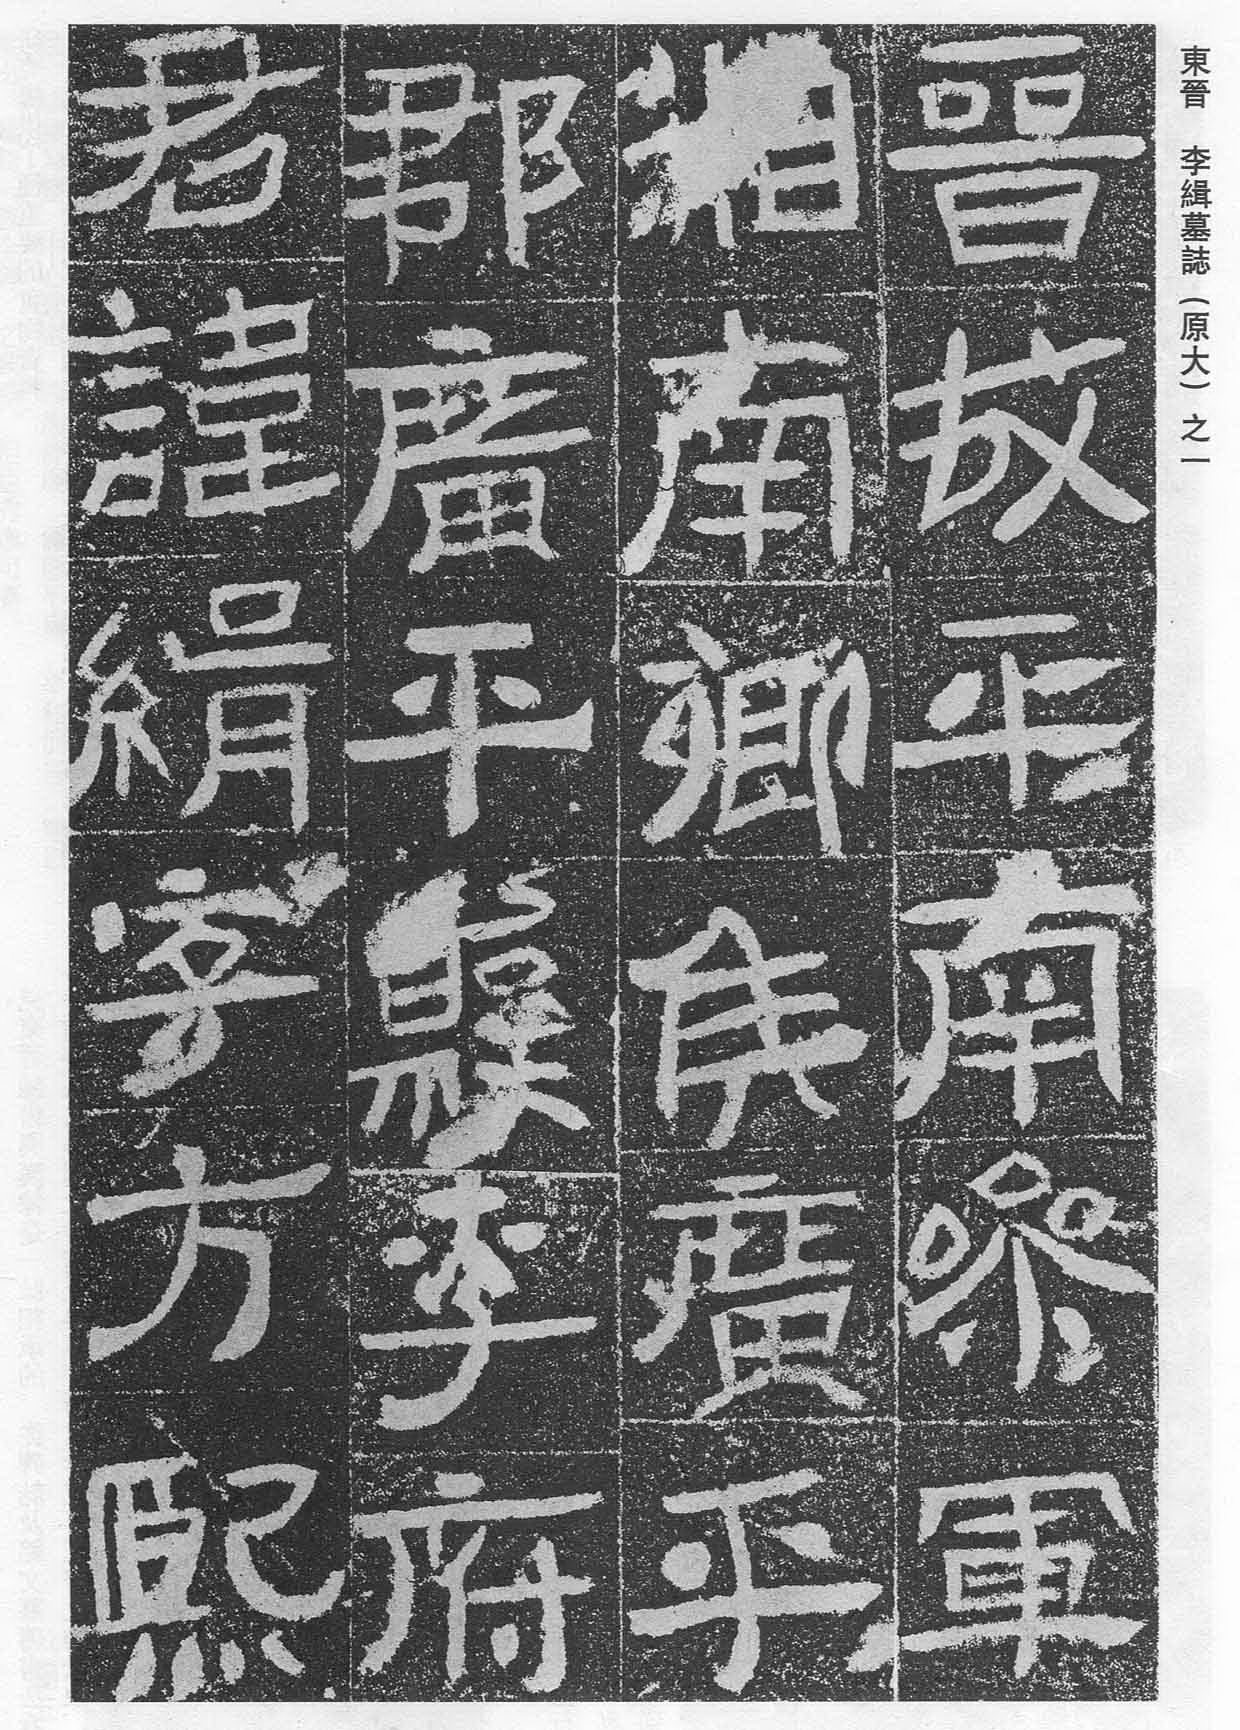 東晉 李緝墓誌(原大)之一
晉故平南參軍
湘南鄉侯廣平
郡廣平縣李府
君諱緝字方熙